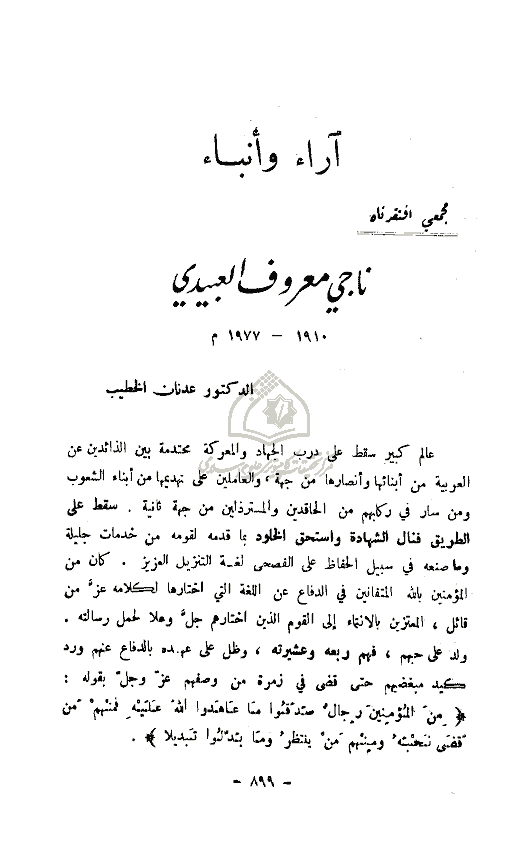 آراء وأنباء
مجمعي افتقدناه
ناجي معروف العبيدي
١٩١٠ – ١٩٧٧ م
الدكتور عدنان الخطيب
عالم كبير سقط على درب الجهاد والمعركة محتدمة بين الذائدين عن
العربية من أبنائها وأنصارها من جهة ، والعاملين على تهديمها من أبناء الشعوب
ومن سار في ركابهم من الحاقدين والمسترذلين من جهة ثانية . سقط على
الطريق فنال الشهادة واستحق الخلود بما قدمه لقومه من خدمات جليلة
وما صنعه في سبيل الحفاظ على الفصحى لغة التنزيل العزيز . كان من
المؤمنين بالله المتفانين في الدفاع عن اللغة التي اختارها لكلامه عزَّ من
قائل ، المعتزين بالانتماء إلى القوم الذين اختارهم جلَّ وعلا لحمل رسالته .
ولد على حبهم ، فهم ربعه وعشيرته ، وظل على عهده بالدفاع عنهم ورد
كيد مبغضيهم حتى قضى في زمرة من وصفهم عزّ وجلّ بقوله :
﴿ مِنَ المُؤمنينَ رجالٌ صدَقُوا ما عاهَدوا اللهَ عليْهِ فمنْهُمْ مَنْ
قضَى نحْبَهُ ومنْهم مَنْ ينتظرُ وما بدَّلُوا تبديلا ﴾ .
– ٨٩٩ –